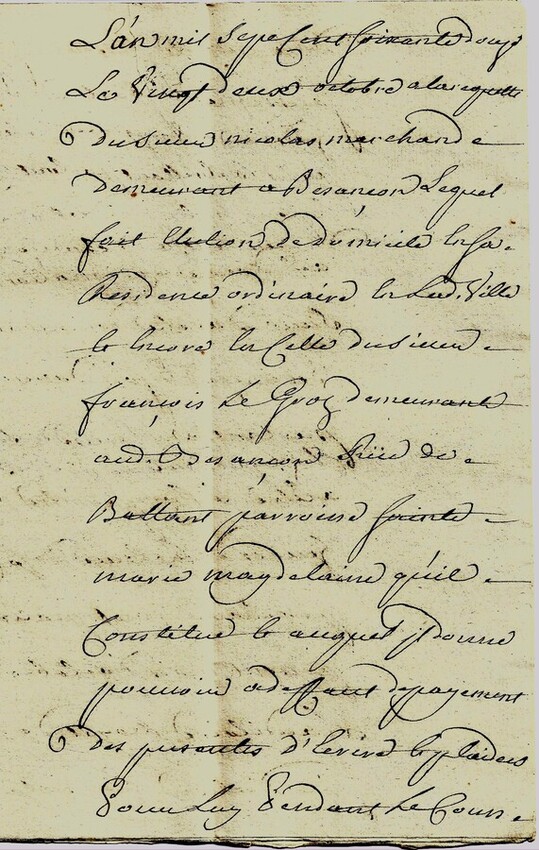 L'an mil sept Cent soixante douze
Le Vingt deux octobre a la requette
du sieur nicolas marchand
demeurant a Besançon Lequel
fait Election de domicile en sa
Residence ordinaire en Lad. Ville
et encore en Celle du sieur
françois Le Groz demeurant
aud. Besançon Rüe de
Battant parroisse sainte
marie magdelaine qu'il
Constitue et auquel il donne
pouvoir a deffaut de payement
des presentes d'Ecrire et plaider
Pour Luy Pendant Le Cour